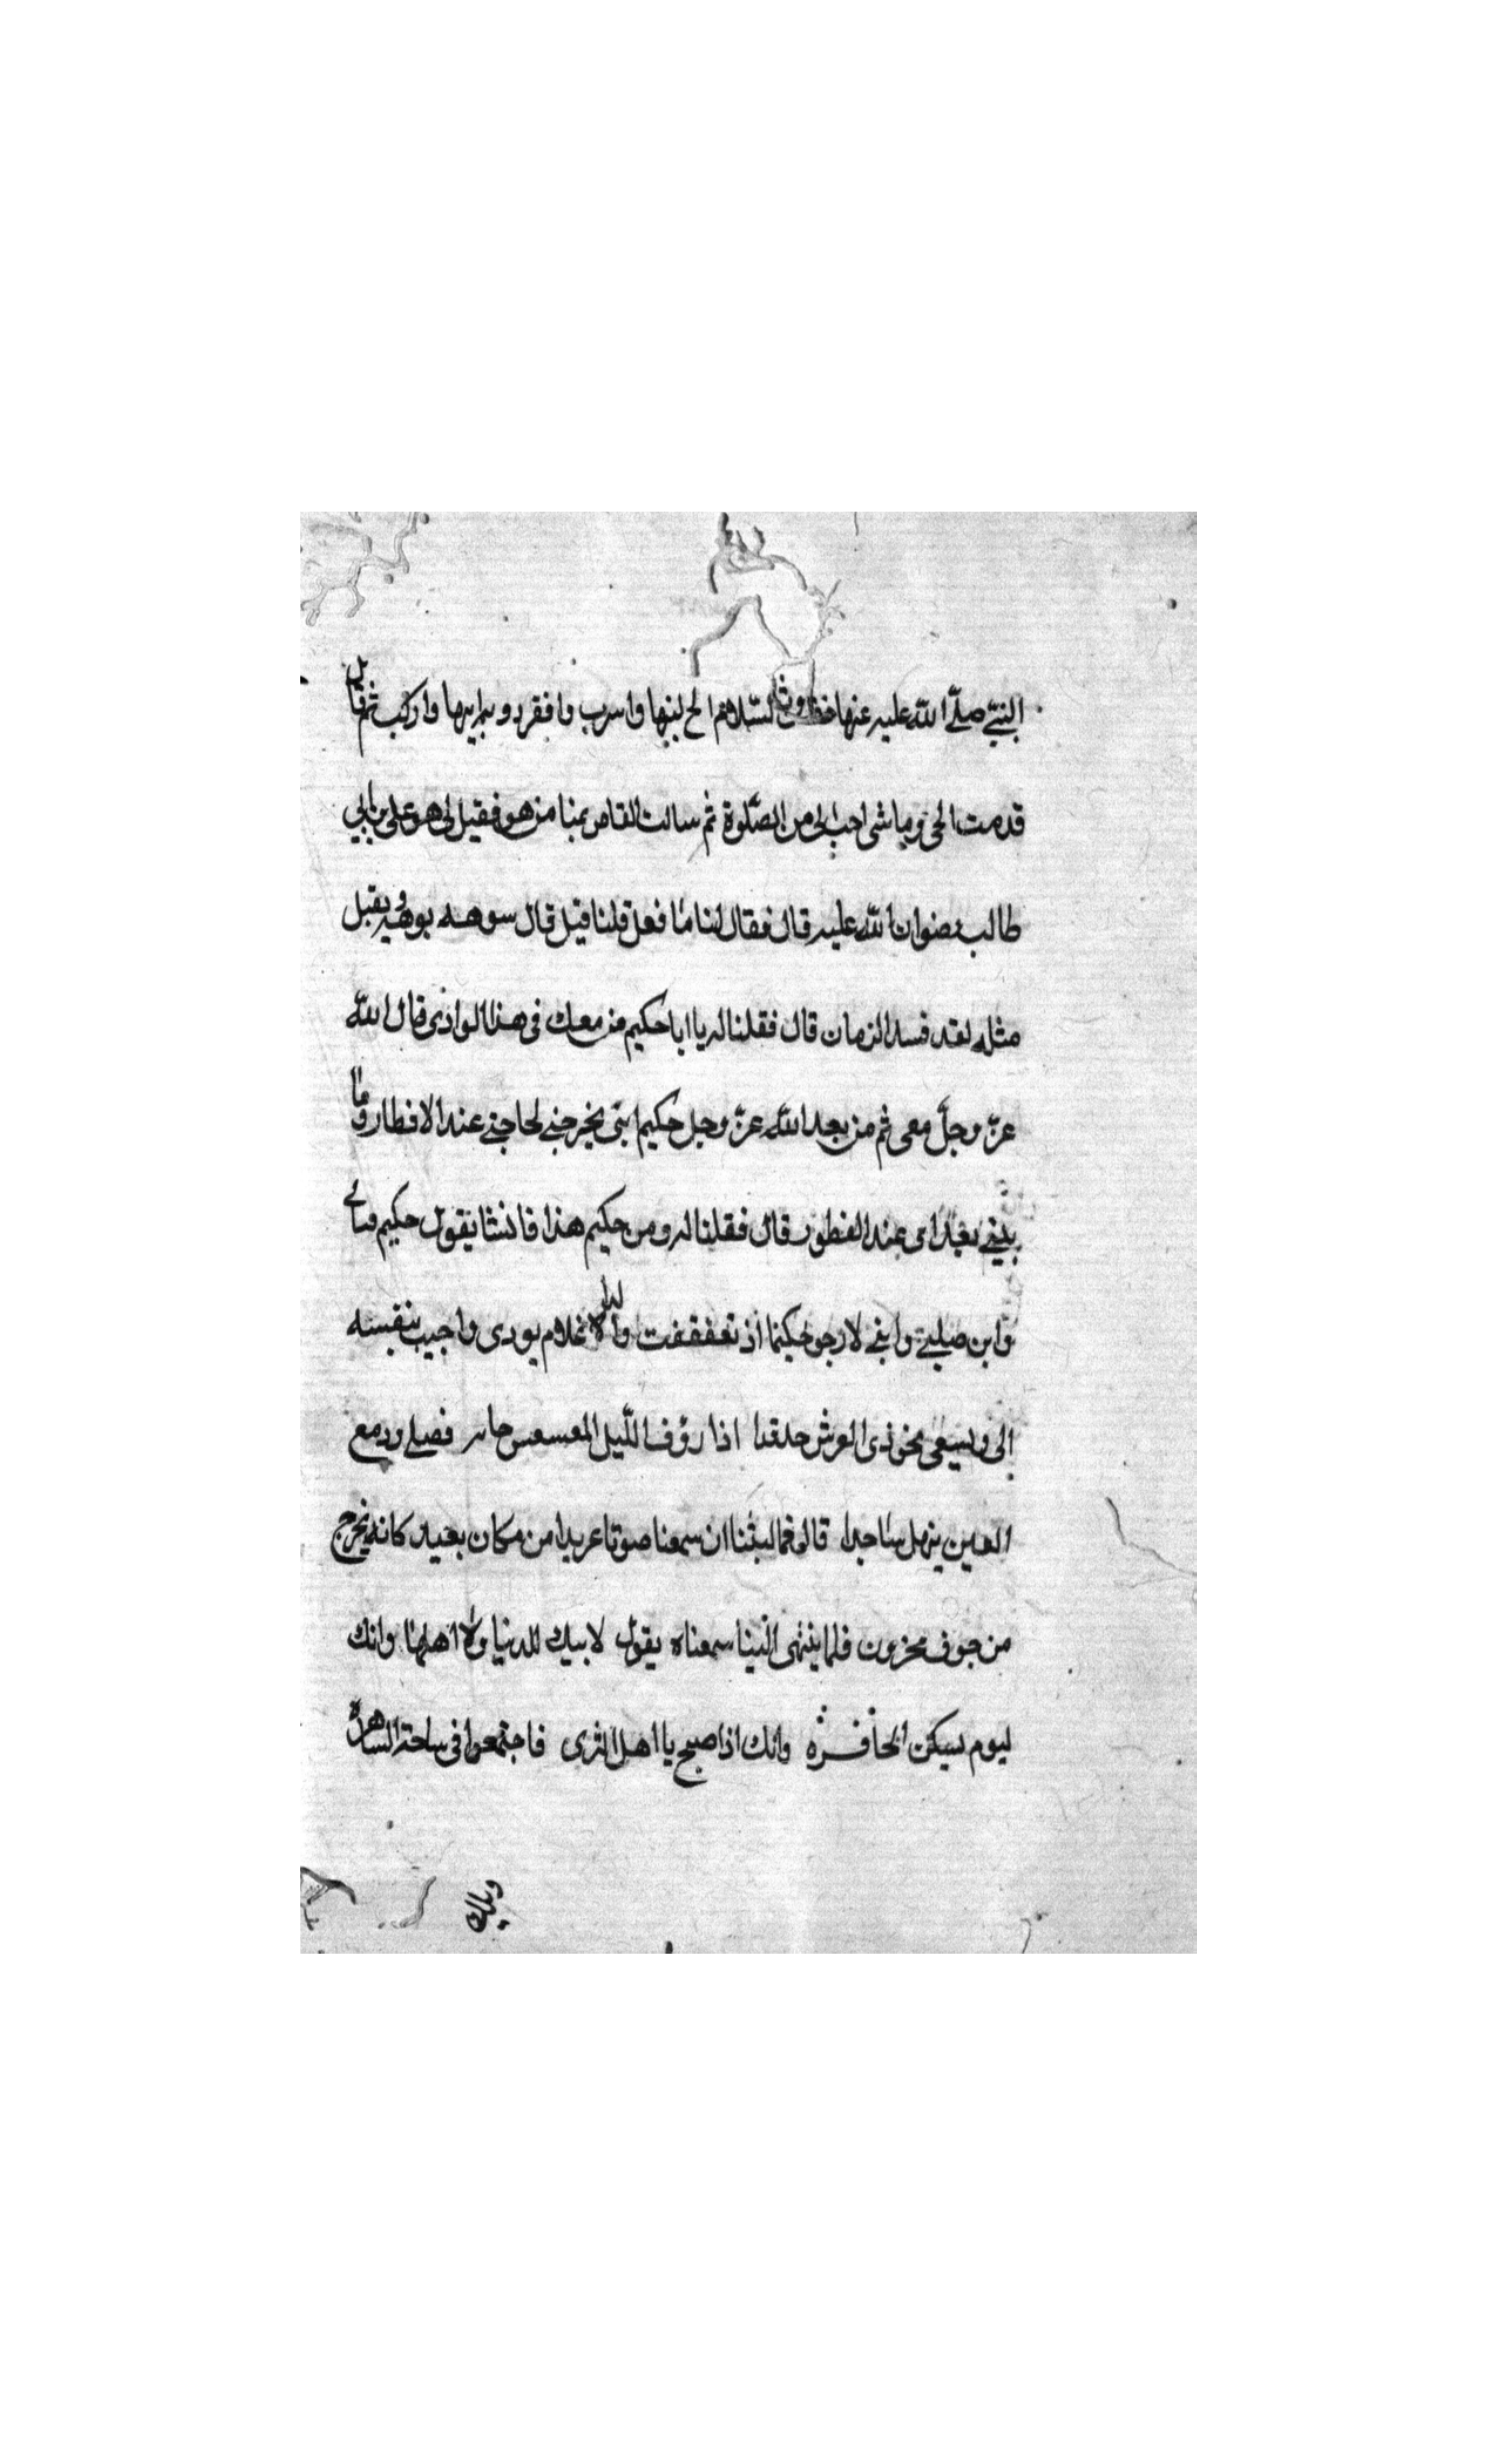 النبيّ صلّى اللّه عليه عنها السّلام الح لبنها واسرب وافقر دو براريها واركب ثم قال
قدمت الحى وما شى احب الى من الصّلوة ثم سالت القاص بمنا من هو فقيل لى هو على بن ابى
طالب رضوان اللّه عليه قال فقال لنا ما فعل قلنا قتل قال سوهه بوهه ويقبل
مثله لقد فسد الزمان قال فقلنا له يا ابا حكيم من معك فى هذا الوادى قال اللّه
عزّ وجلّ معى ثم من بعد اللّه عزّ وجل حكيم ابنى يخرجنى لحاجتى عند الافطار وما
بدنى بغدامى عند الفطور قال فقلنا له ومن حكيم هذا فانشا يقول حكيم منائى
وابن صلبى وابنى لارجو حكيما اذ تعففت والدا لا غلام يودى واجبب بنفسه
الى ويسعى نحو ذى العرش حلقدا اذا روف اللّيل المعسعس حاىر فصلى ودمع
العين ينهل ساجدا قال فما لبثنا ان سمعنا صوتا عربدا من مكان بعيد كانه يخرج
من جوف محزون فلما ينتهى الينا سمعناه يقول لابيك للدنيا ولا اهلها وانك
ليوم يسكن الحافره وانك اذا صبح يا اهل الثرى فاجتمعوا فى ساحة الساهره
ويلك